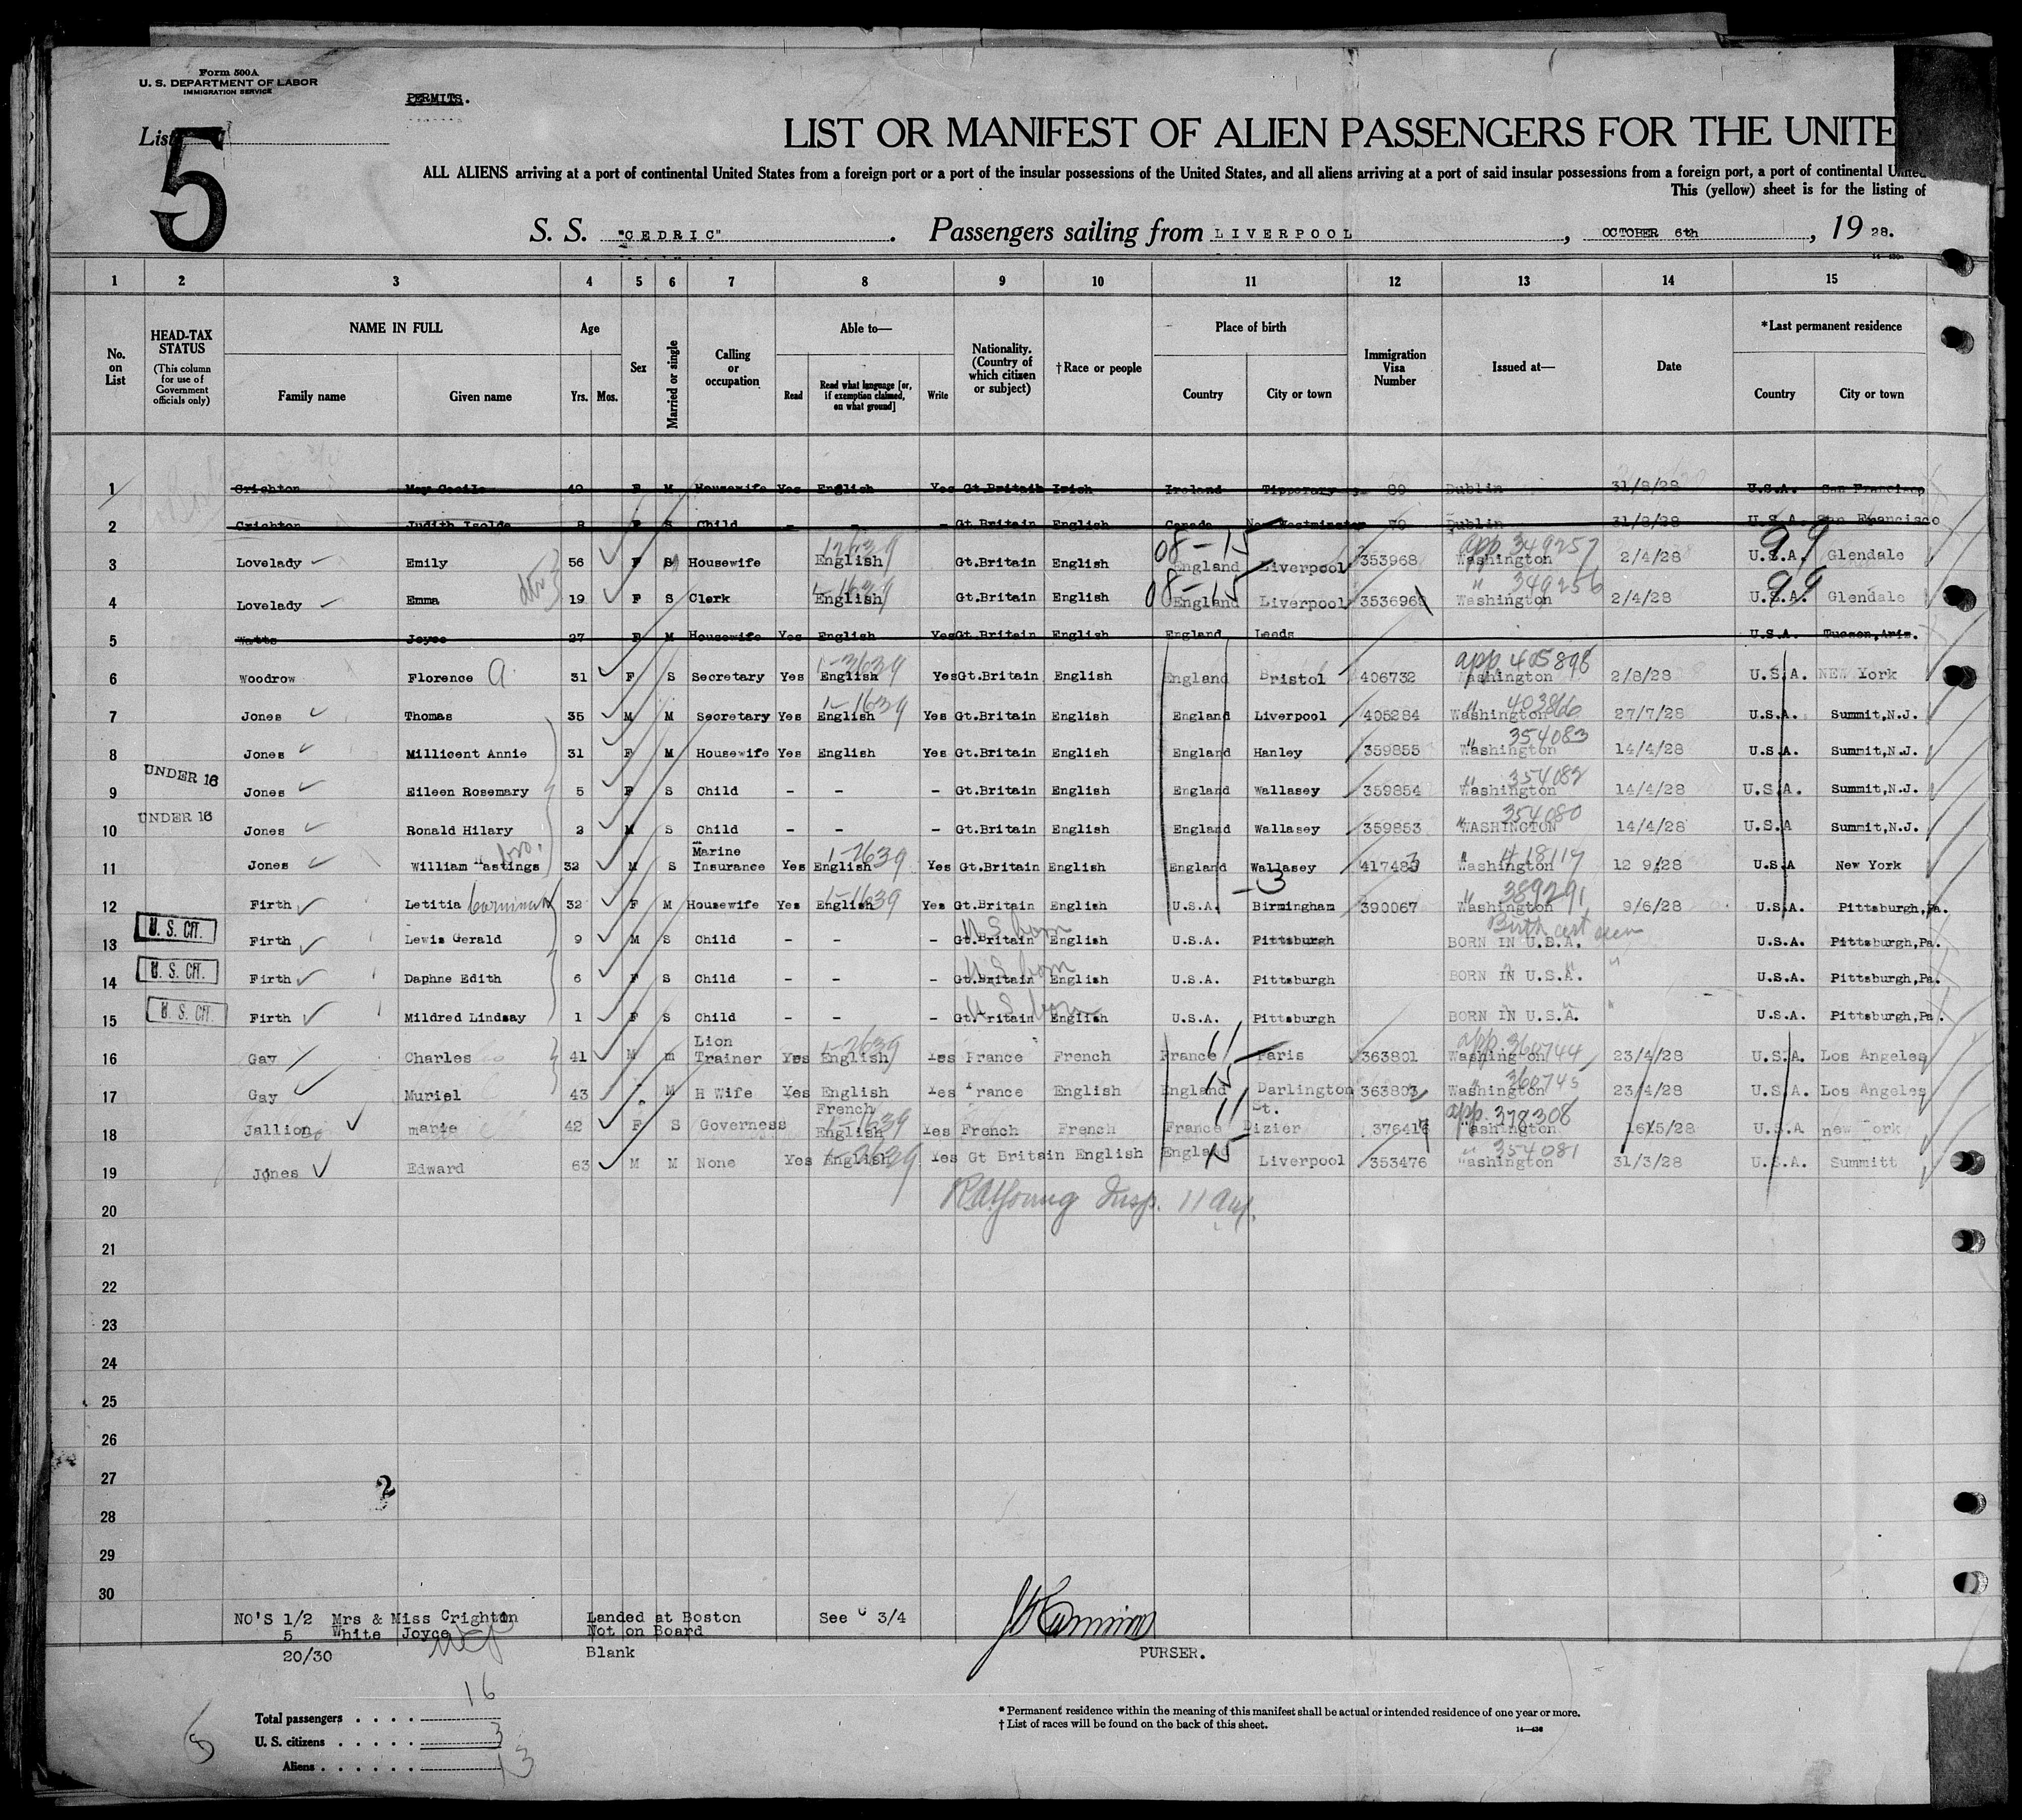 Form 500A
U. S. DEPARTMENT OF LABOR
IMMIGRATION SERVICE
PERMITS.
List
5
LIST OR MANIFEST OF ALIEN PASSENGERS FOR THE UNITE
ALL ALIENS arriving at a port of continental United States from a foreign port or a port of the insular possessions of the United States, and all aliens arriving at a port of said insular possessions from a foreign port, a port of continental United
This (yellow) sheet is for the listing of
S. S. "CEDRIC". Passengers sailing from LIVERPOOL, OCTOBER 6th, 19 28.
1 2 3 4 5 6 7 8 9 10 11 12 13 14 15
No. on List
HEAD-TAX STATUS (This column for use of Government officials only)
NAME IN FULL Family name Given name
Age Yrs. Mos.
Sex
Married or single
Calling or occupation
Able to— Read Read what language [or, if exemption claimed, on what ground] Write
Nationality. (Country of which citizen or subject)
†Race or people
Place of birth Country City or town
Immigration Visa Number
Issued at—
Date
*Last permanent residence Country City or town
1 Crichton May Cecile 49 F M Housewife Yes English Yes Gt.Britain Irish Ireland Tipperary 80 Dublin 31/8/28 U.S.A. San Francisco
2 Crichton Judith Isolde 8 F S Child - - - Gt.Britain English Canada New Westminster 79 Dublin 31/8/28 U.S.A. San Francisco
3 Lovelady Emily 56 F Housewife English Gt.Britain English 08-15 England Liverpool 353968 app 349257 Washington 2/4/28 U.S.A. 99 Glendale
4 Lovelady Emma 19 F S Clerk English Gt.Britain English 08-15 England Liverpool 353696 " 349256 Washington 2/4/28 U.S.A. 99 Glendale
5 Watts Joyce 27 F M Housewife Yes English Yes Gt.Britain English England Leeds U.S.A. Tucson,Ariz.
6 Woodrow Florence A. 31 F S Secretary Yes 1-3639 English Yes Gt.Britain English England Bristol 406732 app 405898 Washington 2/8/28 U.S.A. NEW York
7 Jones Thomas 35 M M Secretary Yes 1-1639 English Yes Gt.Britain English England Liverpool 405284 " 403866 Washington 27/7/28 U.S.A. Summit,N.J.
8 Jones Millicent Annie 31 F M Housewife Yes English Yes Gt.Britain English England Hanley 359855 " 354083 Washington 14/4/28 U.S.A. Summit,N.J.
UNDER 16
9 Jones Eileen Rosemary 5 F S Child - - - Gt.Britain English England Wallasey 359854 " 354082 Washington 14/4/28 U.S.A. Summit,N.J.
UNDER 16
10 Jones Ronald Hilary 2 M S Child - - - Gt.Britain English England Wallasey 359853 " 354080 WASHINGTON 14/4/28 U.S.A Summit,N.J.
11 Jones William Hastings bro. 32 M S Marine Insurance Yes 1-2639 English Yes Gt.Britain English England Wallasey 417483 " 418117 Washington 12 9/28 U.S.A New York
12 Firth Letitia 32 F M Housewife Yes 1-1639 English Yes Gt.Britain English U.S.A. -3 Birmingham 390067 " 389291 Washington 9/6/28 U.S.A. Pittsburgh,Pa.
U. S. CIT.
13 Firth Lewis Gerald 9 M S Child - - - U S born Gt.Britain English U.S.A. Pittsburgh Birth cert seen BORN IN U.S.A. U.S.A. Pittsburgh,Pa.
U. S. CIT.
14 Firth Daphne Edith 6 F S Child - - - U S born Gt.Britain English U.S.A. Pittsburgh " " " BORN IN U.S.A. U.S.A. Pittsburgh,Pa.
U. S. CIT.
15 Firth Mildred Lindsay 1 F S Child - - - U S born Gt.Britain English U.S.A. Pittsburgh " " " BORN IN U.S.A. U.S.A. Pittsburgh,Pa.
16 Gay Charles 41 M m Lion Trainer Yes 1-2639 English Yes France French France 11 Paris 363801 app 360744 Washington 23/4/28 U.S.A. Los Angeles
17 Gay Muriel 43 M H Wife Yes English Yes France English England 15 Darlington 363802 " 360745 Washington 23/4/28 U.S.A. Los Angeles
18 Jallion marie 42 F S Governess French 1-1639 English Yes French French France 11 St. Dizier 376416 app. 378308 Washington 16/5/28 U.S.A new York
19 Jones Edward 63 M M None Yes 1-2639 English Yes Gt Britain English England 15 Liverpool 353476 " 354081 Washington 31/3/28 U.S.A. Summitt
R.A. Young Insp.
20
21
22
23
24
25
26
27
2
28
29
30
NO'S 1/2 Mrs & Miss Crighton Landed at Boston See C 3/4
5 White Joyce Not on Board
20/30 Blank PURSER.
Total passengers 16
U. S. citizens 3
Aliens 13
* Permanent residence within the meaning of this manifest shall be actual or intended residence of one year or more.
† List of races will be found on the back of this sheet.
14—430